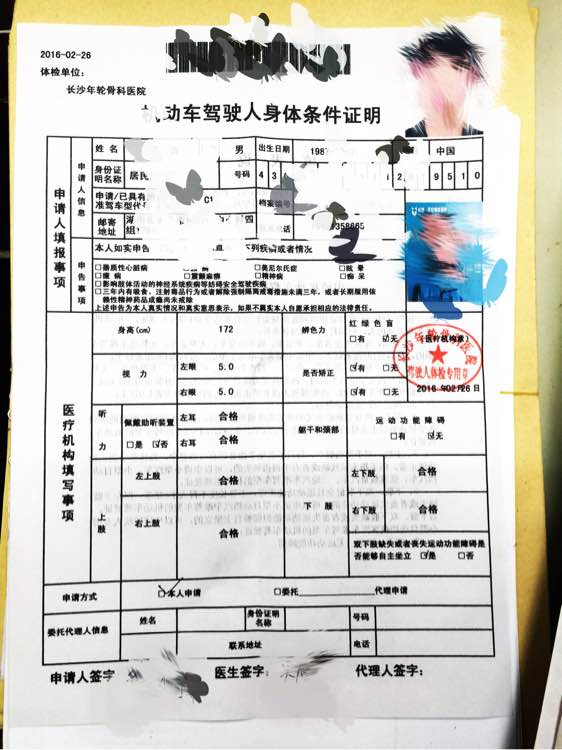 2016-02-26
体检单位：
长沙年轮骨科医院
机动车驾驶人身体条件证明
申请人填报事项
申请人信息
姓名
男
出生日期
198
中国
身份证明名称
居民
号码
4 3
9 5 1 0
申请/已具有准驾车型代
C1
档案编号
邮寄地址
组
四
话
358665
申告事项
本人如实申告
下列疾病或者情况
□器质性心脏病
□美尼尔氏症 □眩晕
□癔病 □震颤麻痹 □精神病 □痴呆
□影响肢体活动的神经系统疾病等妨碍安全驾驶疾病
□三年内有吸食、注射毒品行为或者解除强制隔离戒毒措施未满三年，或者长期服用依
赖性精神药品成瘾尚未戒除
上述申告为本人真实情况和真实意思表示，如果不属实本人自愿承担相应的法律责任。
医疗机构填写事项
身高(cm)
172
辨色力
红绿色盲
□有 ☑无
(医疗机构章)
长沙年轮骨科医院
驾驶人体检专用章
2016 年02月26日
视力
左眼
5.0
右眼
5.0
是否矫正
☑有 □无
☑有 □无
听力
佩戴助听装置
□是 ☑否
左耳
合格
右耳
合格
躯干和颈部
运动功能障碍
□有 ☑无
上肢
左上肢
合格
右上肢
合格
下肢
左下肢
合格
右下肢
合格
双下肢缺失或者丧失运动功能障碍是
否能够自主坐立 ☑是 □否
申请方式
☑本人申请
□委托 代理申请
委托代理人信息
姓名
身份证明名称
号码
联系地址
电话
申请人签字
医生签字：
代理人签字：